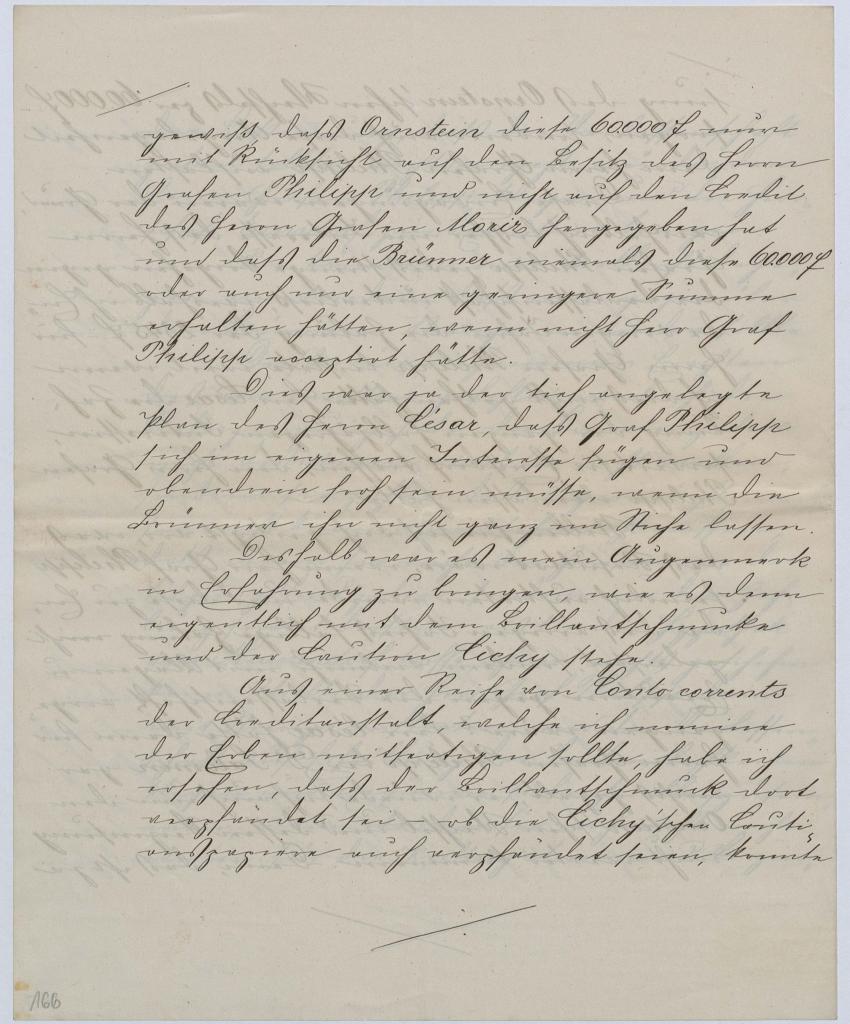 gewiß, daß Ornstein diese 60.000 f nur
mit Rücksicht auf den Besitz des Herrn
Grafen Philipp und nicht auf den Credit
des Herrn Grafen Moriz hergegeben hat
und daß die Brünner niemals diese 60.000 f
oder auch nur eine geringere Summe
erhalten hätten, wenn nicht Herr Graf
Philipp acceptirt hätte.
Dies war ja der tief angelegte
Plan des Herrn César, daß Graf Philipp
sich im eigenen Interesse fügen und
obendrein froh sein müsse, wenn die
Brünner ihn nicht ganz im Stiche lassen.
Deshalb war es mein Augenmerk
in Erfahrung zu bringen, wie es denn
eigentlich mit dem Brillantschmucke
und der Caution Cichy stehe.
Aus einer Reihe von Conto corrents
der Creditanstalt, welche ich nomine
der Erben mitfertigen sollte, habe ich
ersehen, daß der Brillantschmuck dort
verpfändet sei – ob die Cichy'schen Cauti-
onspapiere auch verpfändet seien, konnte
166